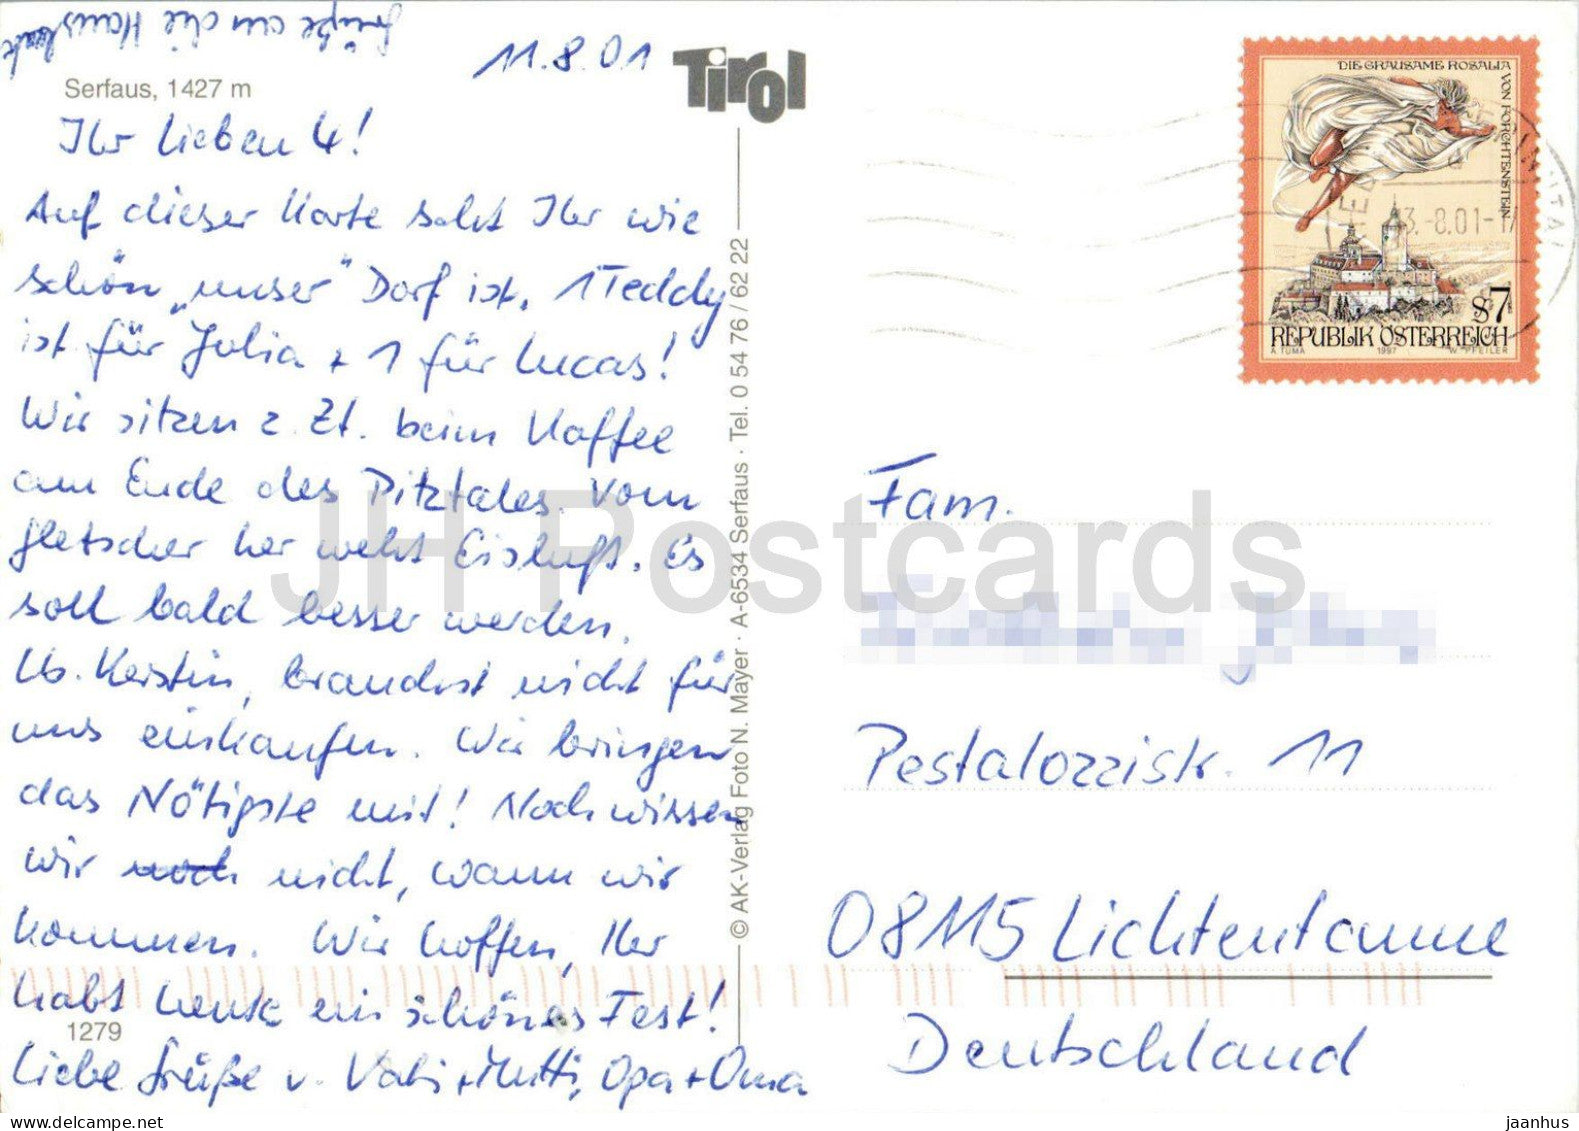 Grüße an die Hausleute
11.8.01
Tirol
Serfaus, 1427 m
Ihr lieben 4!
Auf dieser Karte seht Ihr wie
schön „unser" Dorf ist. 1 Teddy
ist für Julia + 1 für Lucas!
Wir sitzen z. Zt. beim Kaffee
am Ende des Pitztales. Vom
Gletscher her weht Eisluft. Es
soll bald besser werden.
Kerstin, brauchst nicht für
uns einkaufen. Wir bringen
das Nötigste mit! Noch wissen
wir noch nicht, wann wir
kommen. Wir hoffen, Ihr
habt heute ein schönes Fest!
1279
Liebe Grüße v. Vati + Mutti, Opa + Oma
© AK-Verlag Foto N. Mayer · A-6534 Serfaus · Tel. 0 54 76 / 62 22
DIE GRAUSAME ROSALIA
VON FORCHTENSTEIN
-8.01-1
S7
REPUBLIK ÖSTERREICH
A. TUMA 1997 W. PFEILER
Fam.
Pestalozzistr. 11
08115 Lichtentanne
Deutschland
JH Postcards
www.delcampe.net
jaanhus